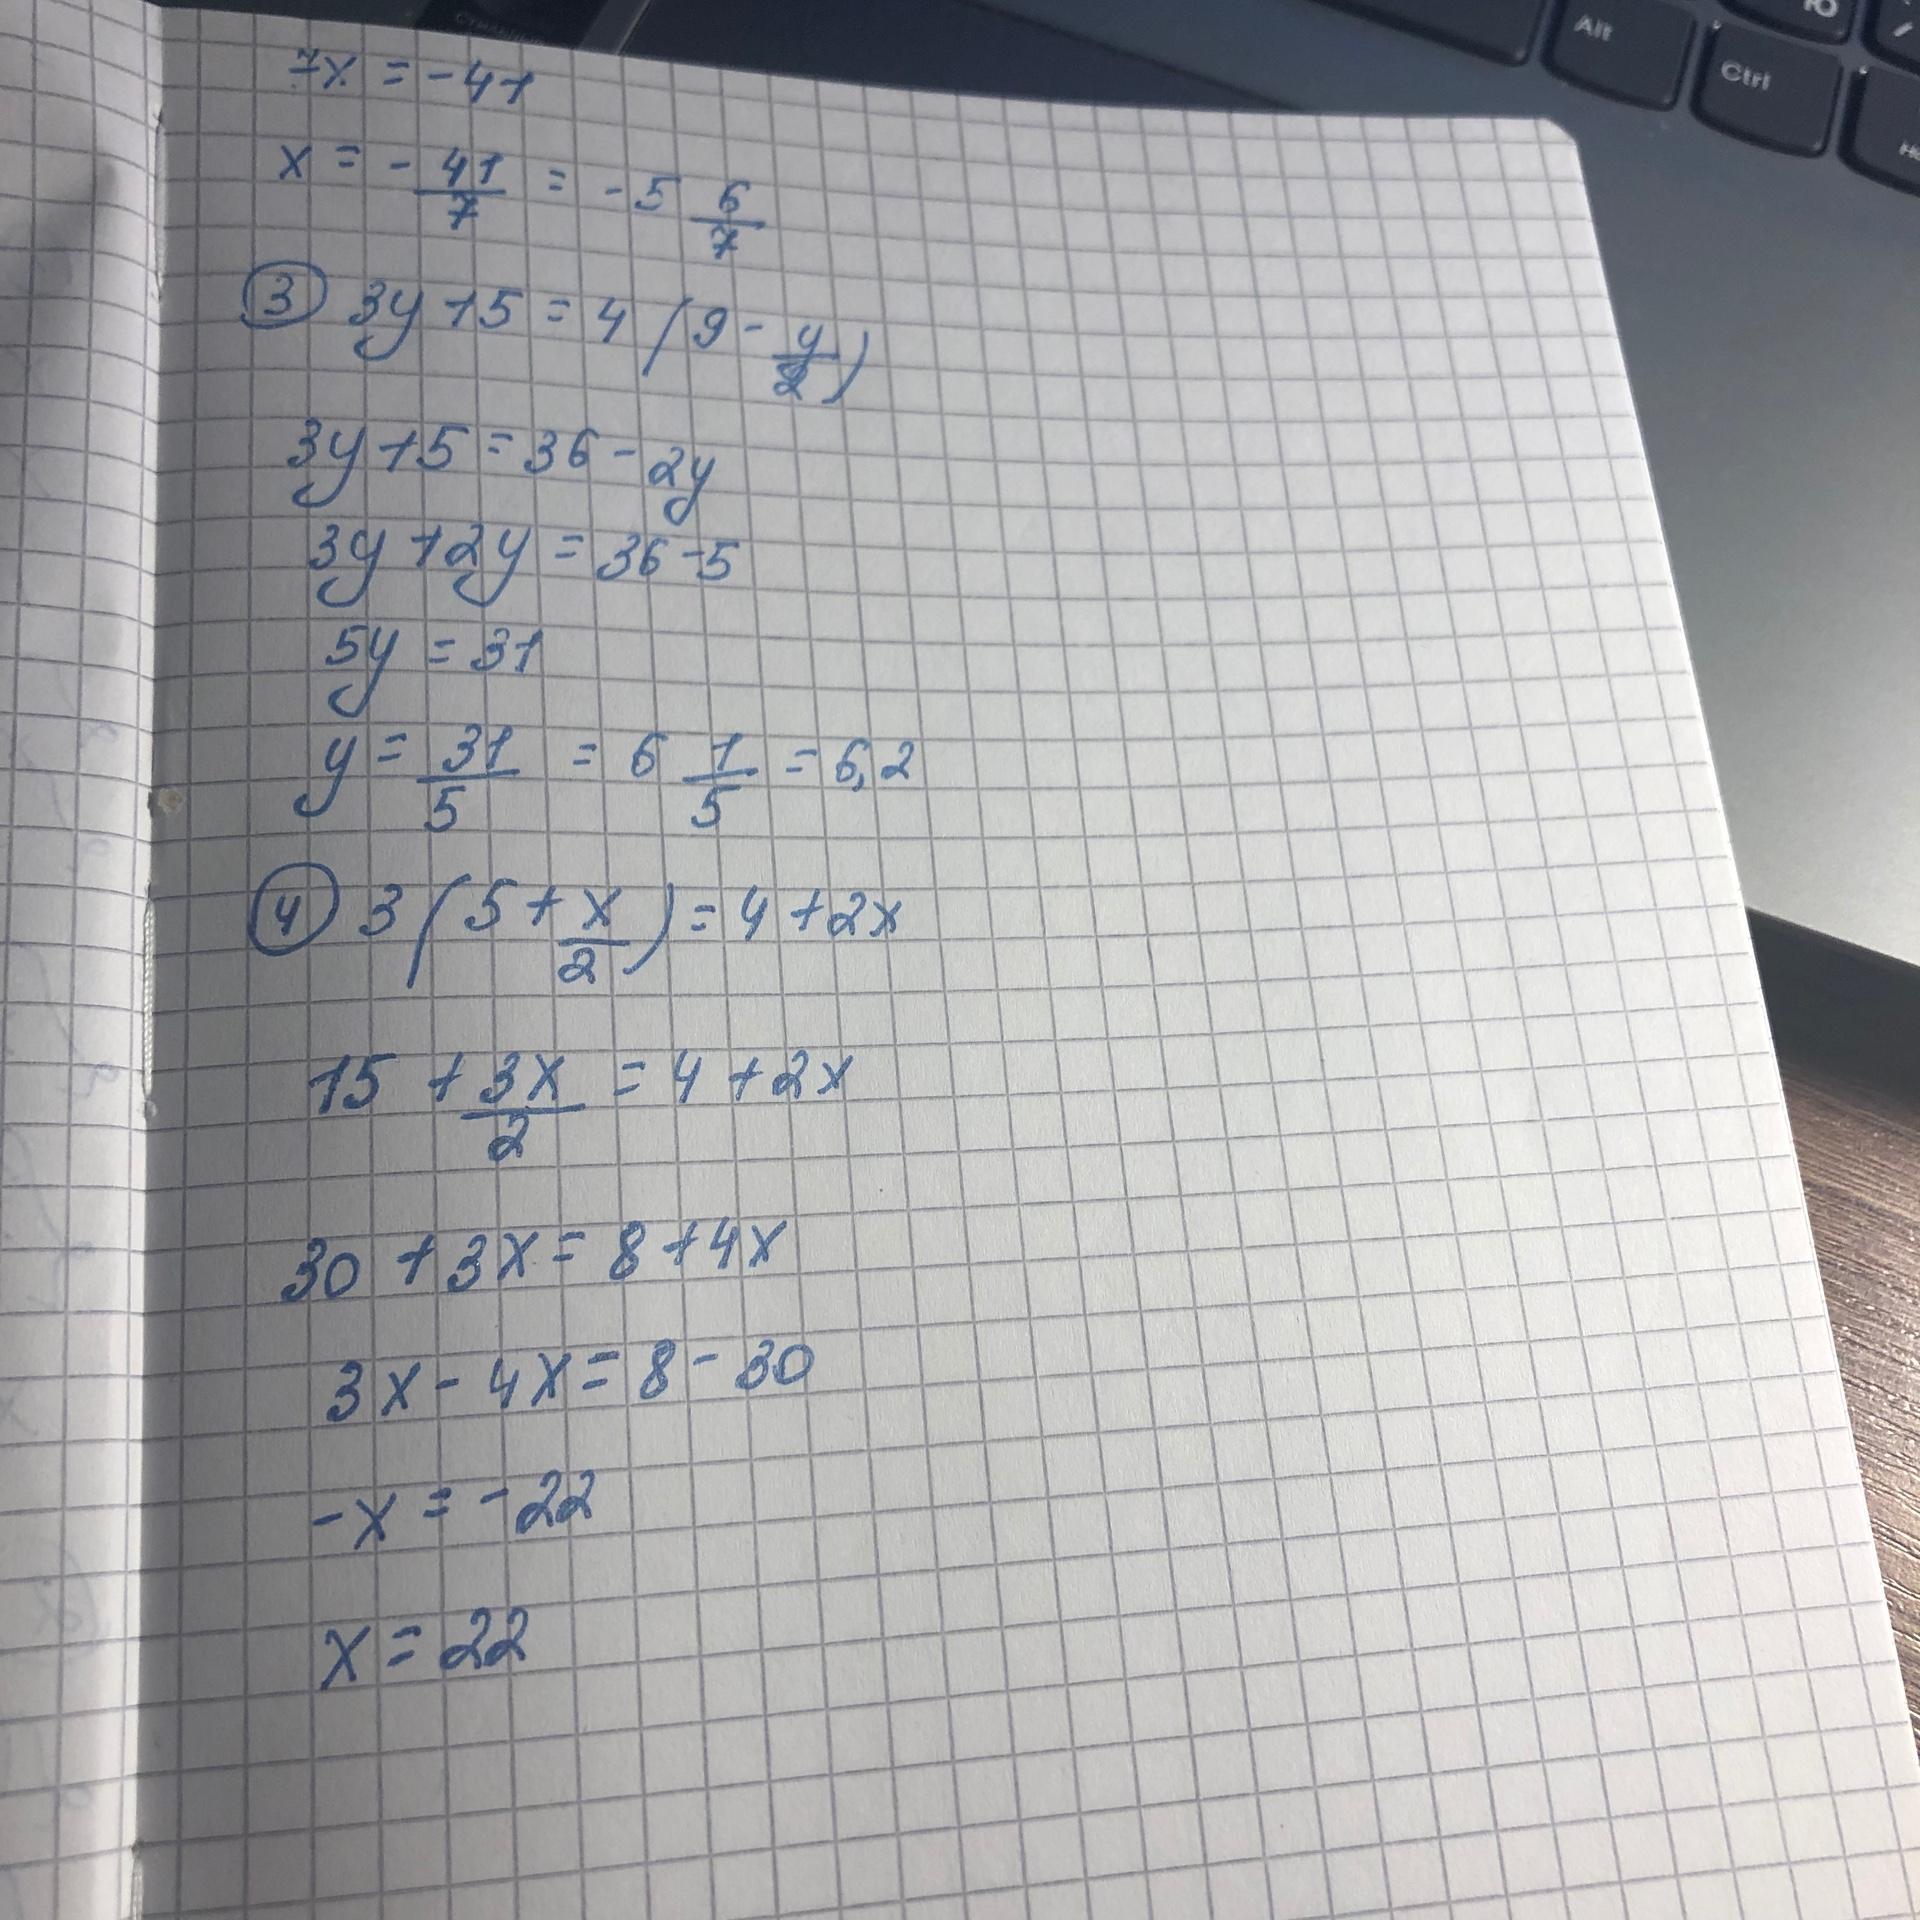 Alt
Ю
Ctrl
7x = -41
x = - 41/7 = -5 6/7
③ 3y + 5 = 4 (9 - y/2)
3y + 5 = 36 - 2y
3y + 2y = 36 - 5
5y = 31
y = 31/5 = 6 1/5 = 6,2
④ 3 (5 + x/2) = 4 + 2x
15 + 3x/2 = 4 + 2x
30 + 3x = 8 + 4x
3x - 4x = 8 - 30
-x = -22
x = 22